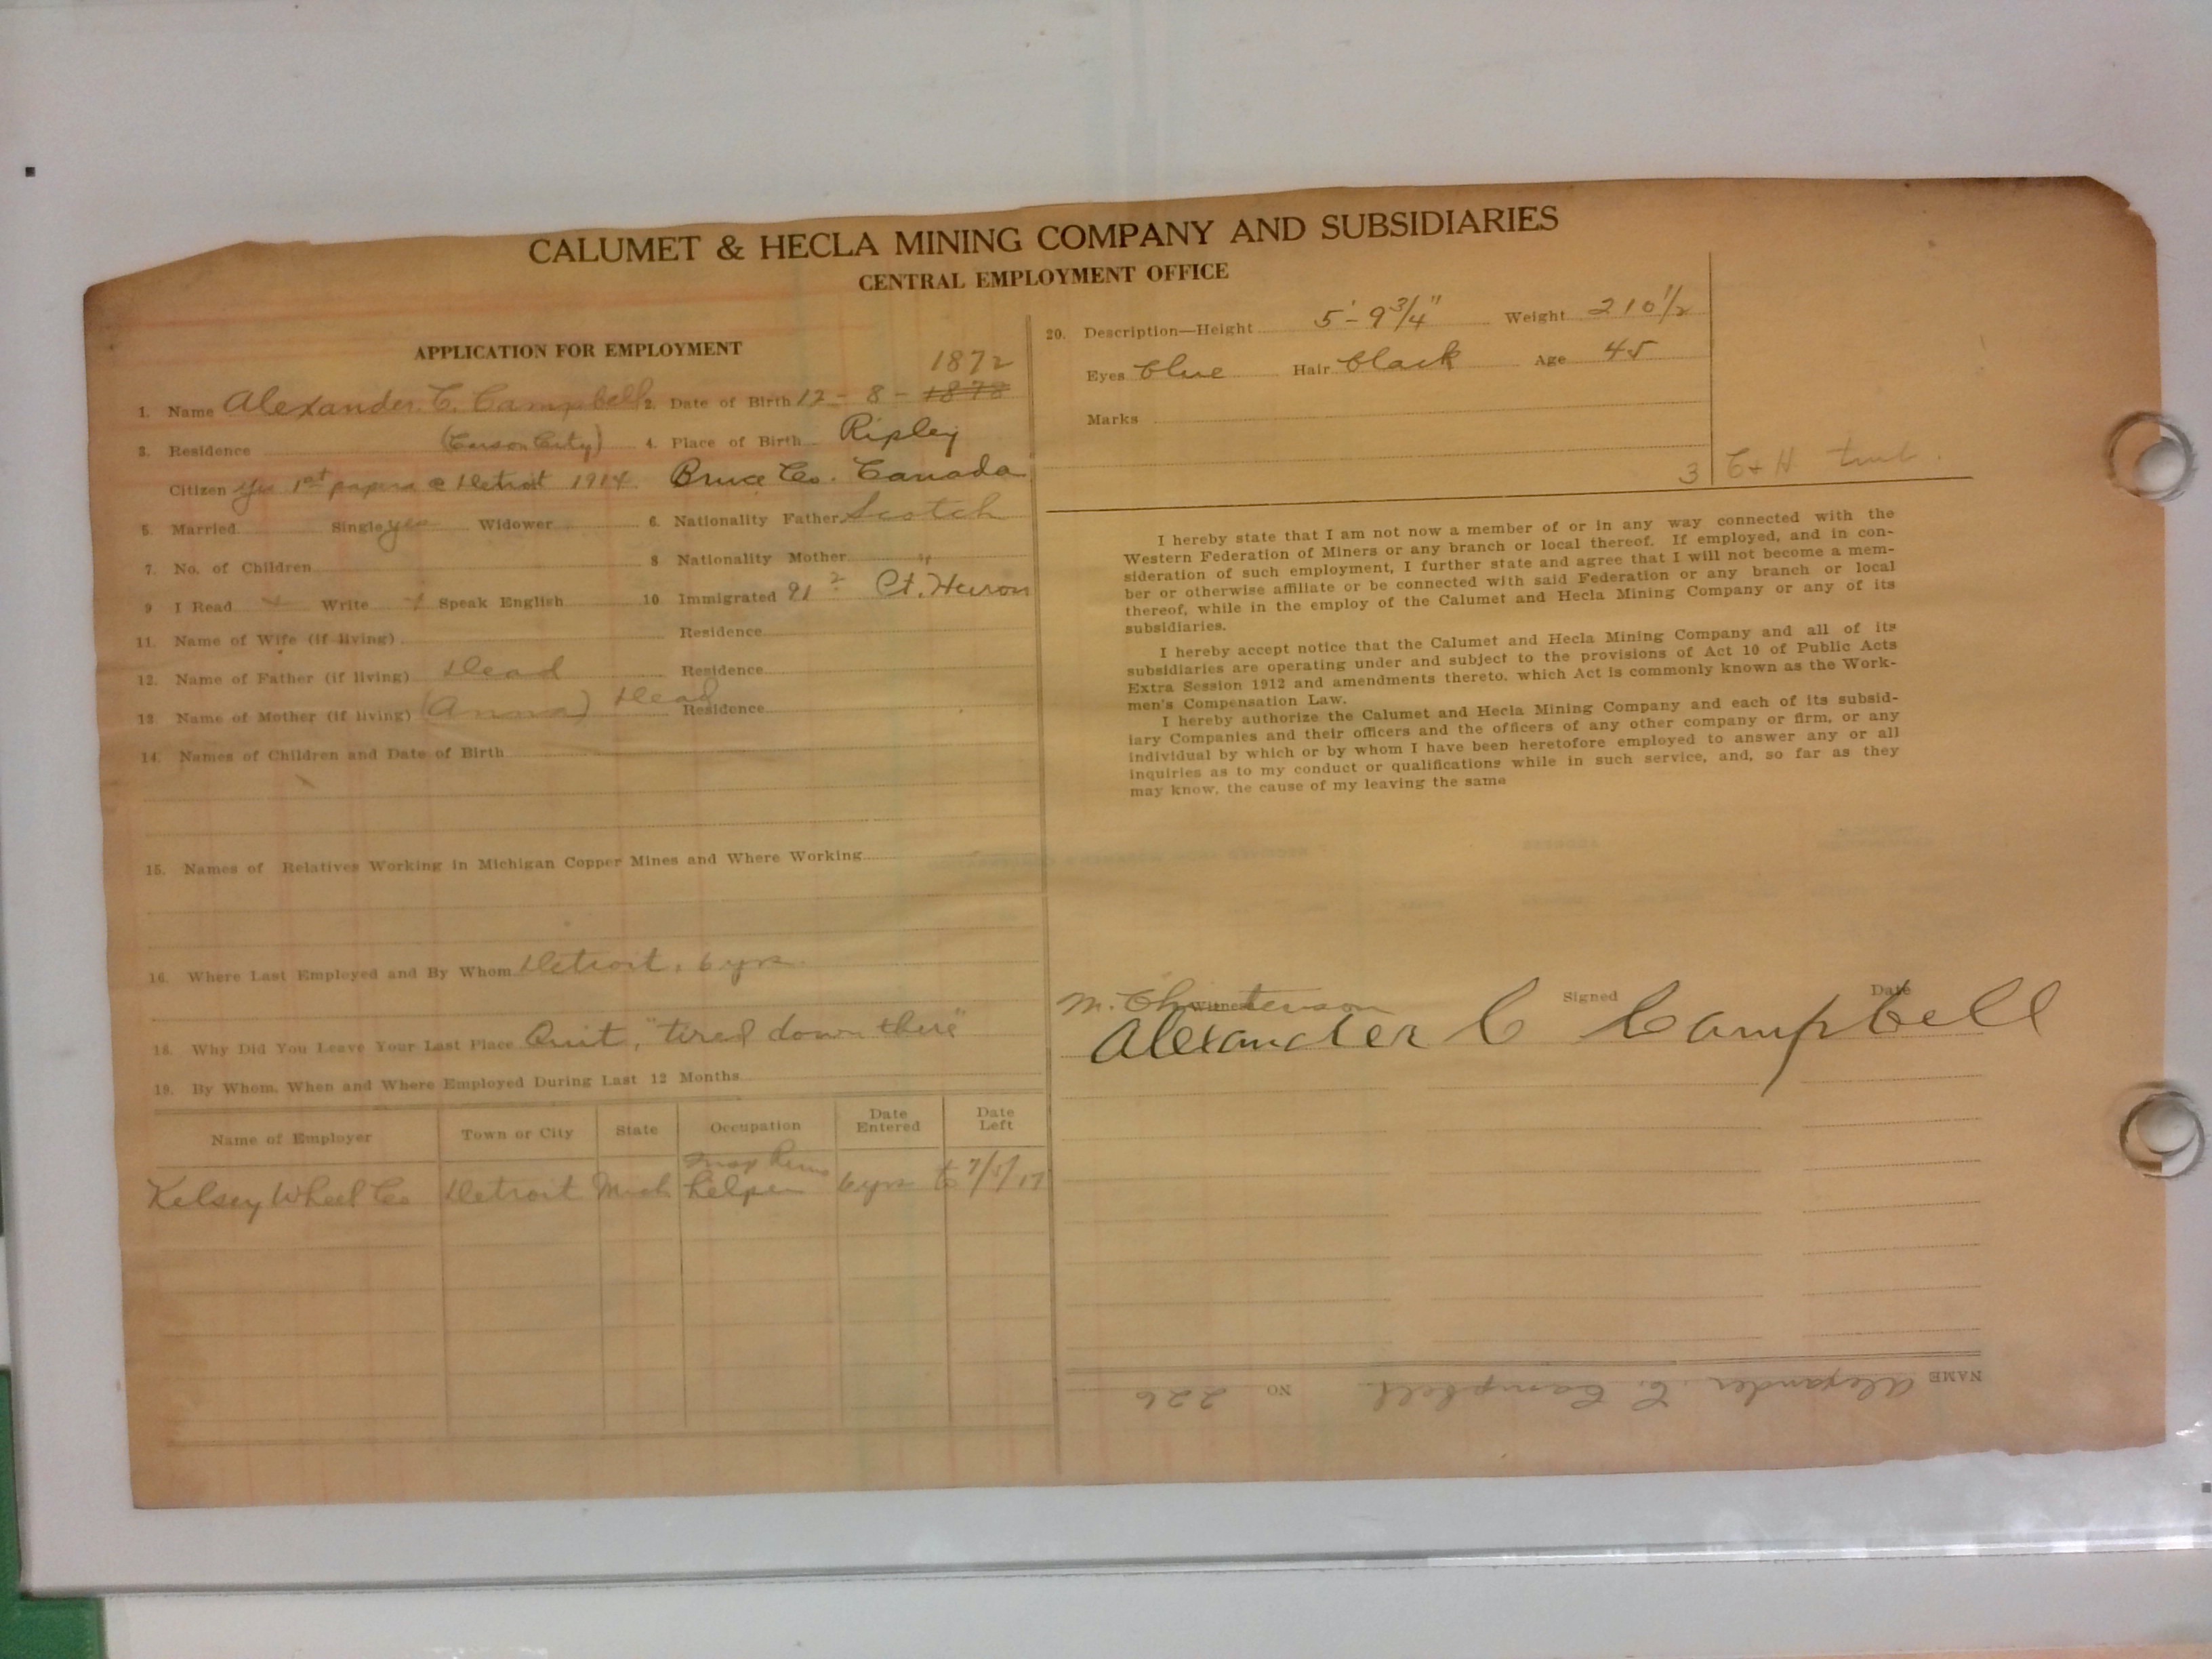 CALUMET & HECLA MINING COMPANY AND SUBSIDIARIES
CENTRAL EMPLOYMENT OFFICE
APPLICATION FOR EMPLOYMENT
1872
1. Name Alexander. C. Campbell 2. Date of Birth 12 - 8 - 1878
3. Residence (Carson City) 4. Place of Birth Ripley
Citizen yes 1st papers @ Detroit 1914. Bruce Co. Canada
5. Married Single yes Widower 6. Nationality Father Scotch
7. No. of Children 8 Nationality Mother "
9 I Read Write Speak English 10 Immigrated 21 ? Pt. Huron
11. Name of Wife (if living) Residence
12. Name of Father (if living) Dead Residence
13. Name of Mother (if living) (Anna) Dead Residence
14. Names of Children and Date of Birth
15. Names of Relatives Working in Michigan Copper Mines and Where Working
16. Where Last Employed and By Whom Detroit, 6 yrs.
18. Why Did You Leave Your Last Place Quit, "tired down there"
19. By Whom, When and Where Employed During Last 12 Months
Name of Employer Town or City State Occupation Date Entered Date Left
Kelsey Wheel Co Detroit Mich helper 6yrs to 7/5/17
20. Description—Height 5'-9 3/4" Weight 210 1/2
Eyes blue Hair black Age 45
Marks
3 C + H
I hereby state that I am not now a member of or in any way connected with the
Western Federation of Miners or any branch or local thereof. If employed, and in con-
sideration of such employment, I further state and agree that I will not become a mem-
ber or otherwise affiliate or be connected with said Federation or any branch or local
thereof, while in the employ of the Calumet and Hecla Mining Company or any of its
subsidiaries.
I hereby accept notice that the Calumet and Hecla Mining Company and all of its
subsidiaries are operating under and subject to the provisions of Act 10 of Public Acts
Extra Session 1912 and amendments thereto, which Act is commonly known as the Work-
men's Compensation Law.
I hereby authorize the Calumet and Hecla Mining Company and each of its subsid-
iary Companies and their officers and the officers of any other company or firm, or any
individual by which or by whom I have been heretofore employed to answer any or all
inquiries as to my conduct or qualifications while in such service, and, so far as they
may know, the cause of my leaving the same
M. Christenson Witness Signed Date
Alexander C Campbell
NAME Alexander C. Campbell. NO 226